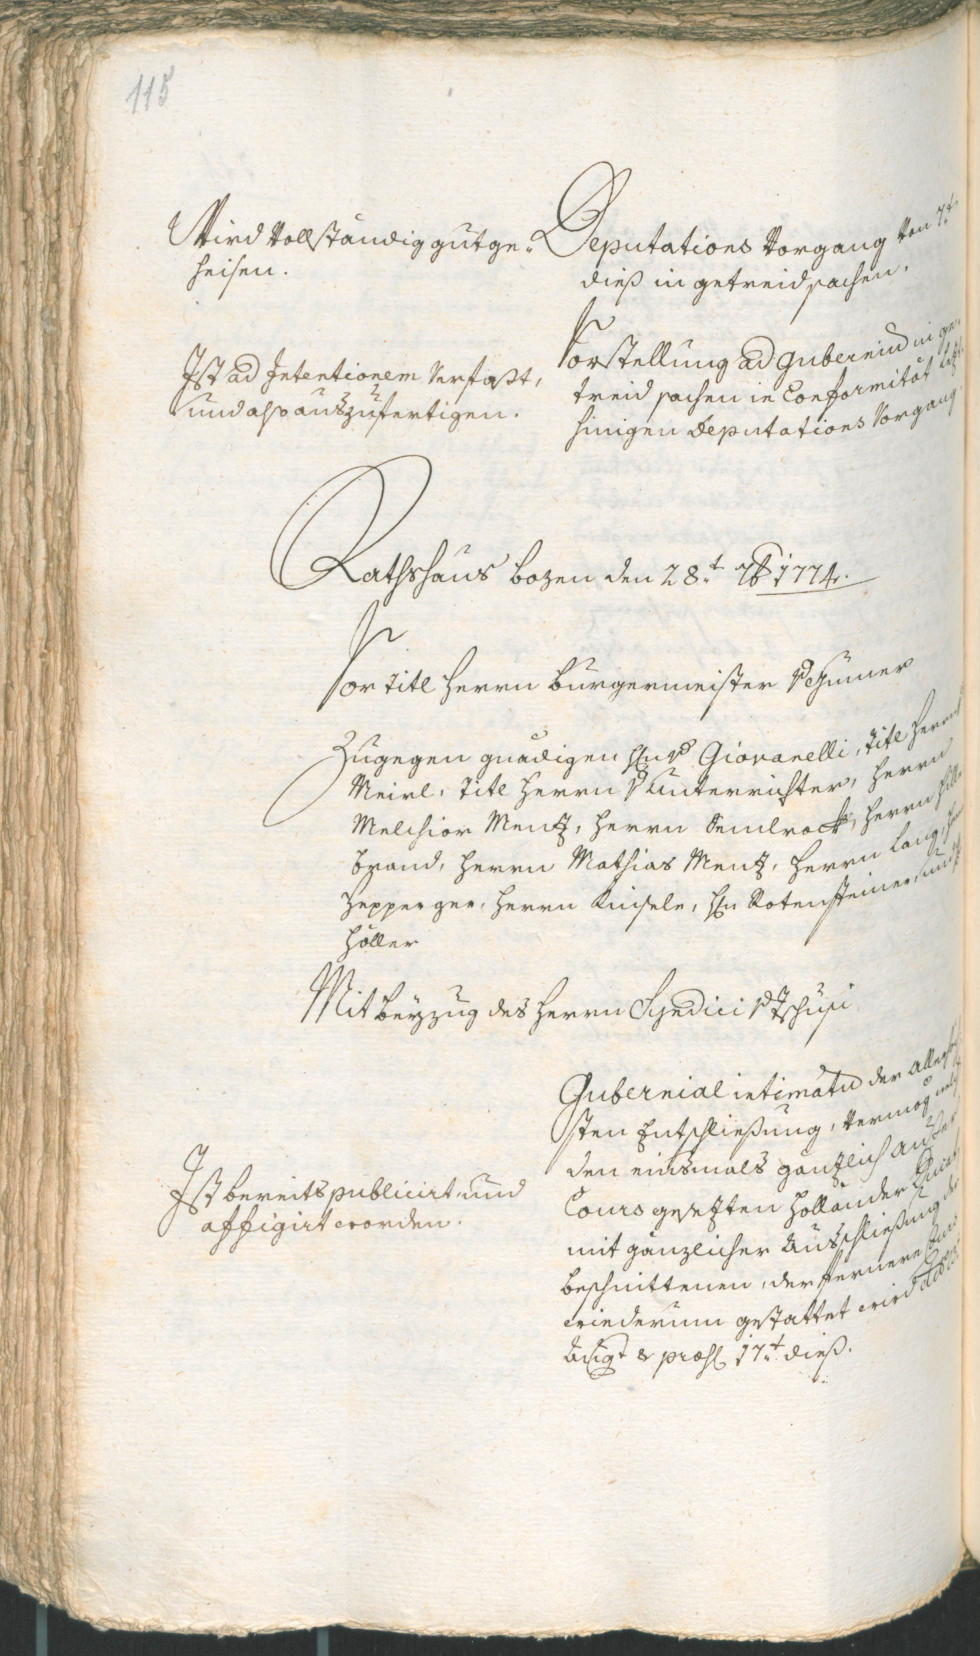 115
Wird vollständig gutge-
heisen.
Deputations vorgang von 7.t
dieß in getreid sachen.
Ist ad Intentionem verfaßt,
und also auszufertigen.
Vorstellung ad Gubernium in ge-
treid sachen in Conformität
hinigen Deputations Vorgang
Rathshaus bozen den 28.t 7b 1774.
Vor titl herrn burgermeister v Gumer
Zugegen gnädigen hn v Giovanelli, titl herrn
Meirl, titl herrn v Unterrichter, herrn
Melchior Mentz, herrn Semlrock, herrn Hille
brand, herrn Mathias Mentz, herrn Lang,
Zepperger, herrn Kinsele, hn Rotensteiner, und
höller
Mit beyzug des herrn Syndici v Tschusi
Ist bereits publicirt und
affigirt worden.
Gubernial intimatum der Allerhöch
sten Entschließung, vermög
den einsmals gäntzlich außer
Cours gesetzten holländer Ducat
mit gänzlicher Ausschließung der
beschnittenen, der fernere Cours
wiederum gestattet wird
Augt & præs 17.t dieß.